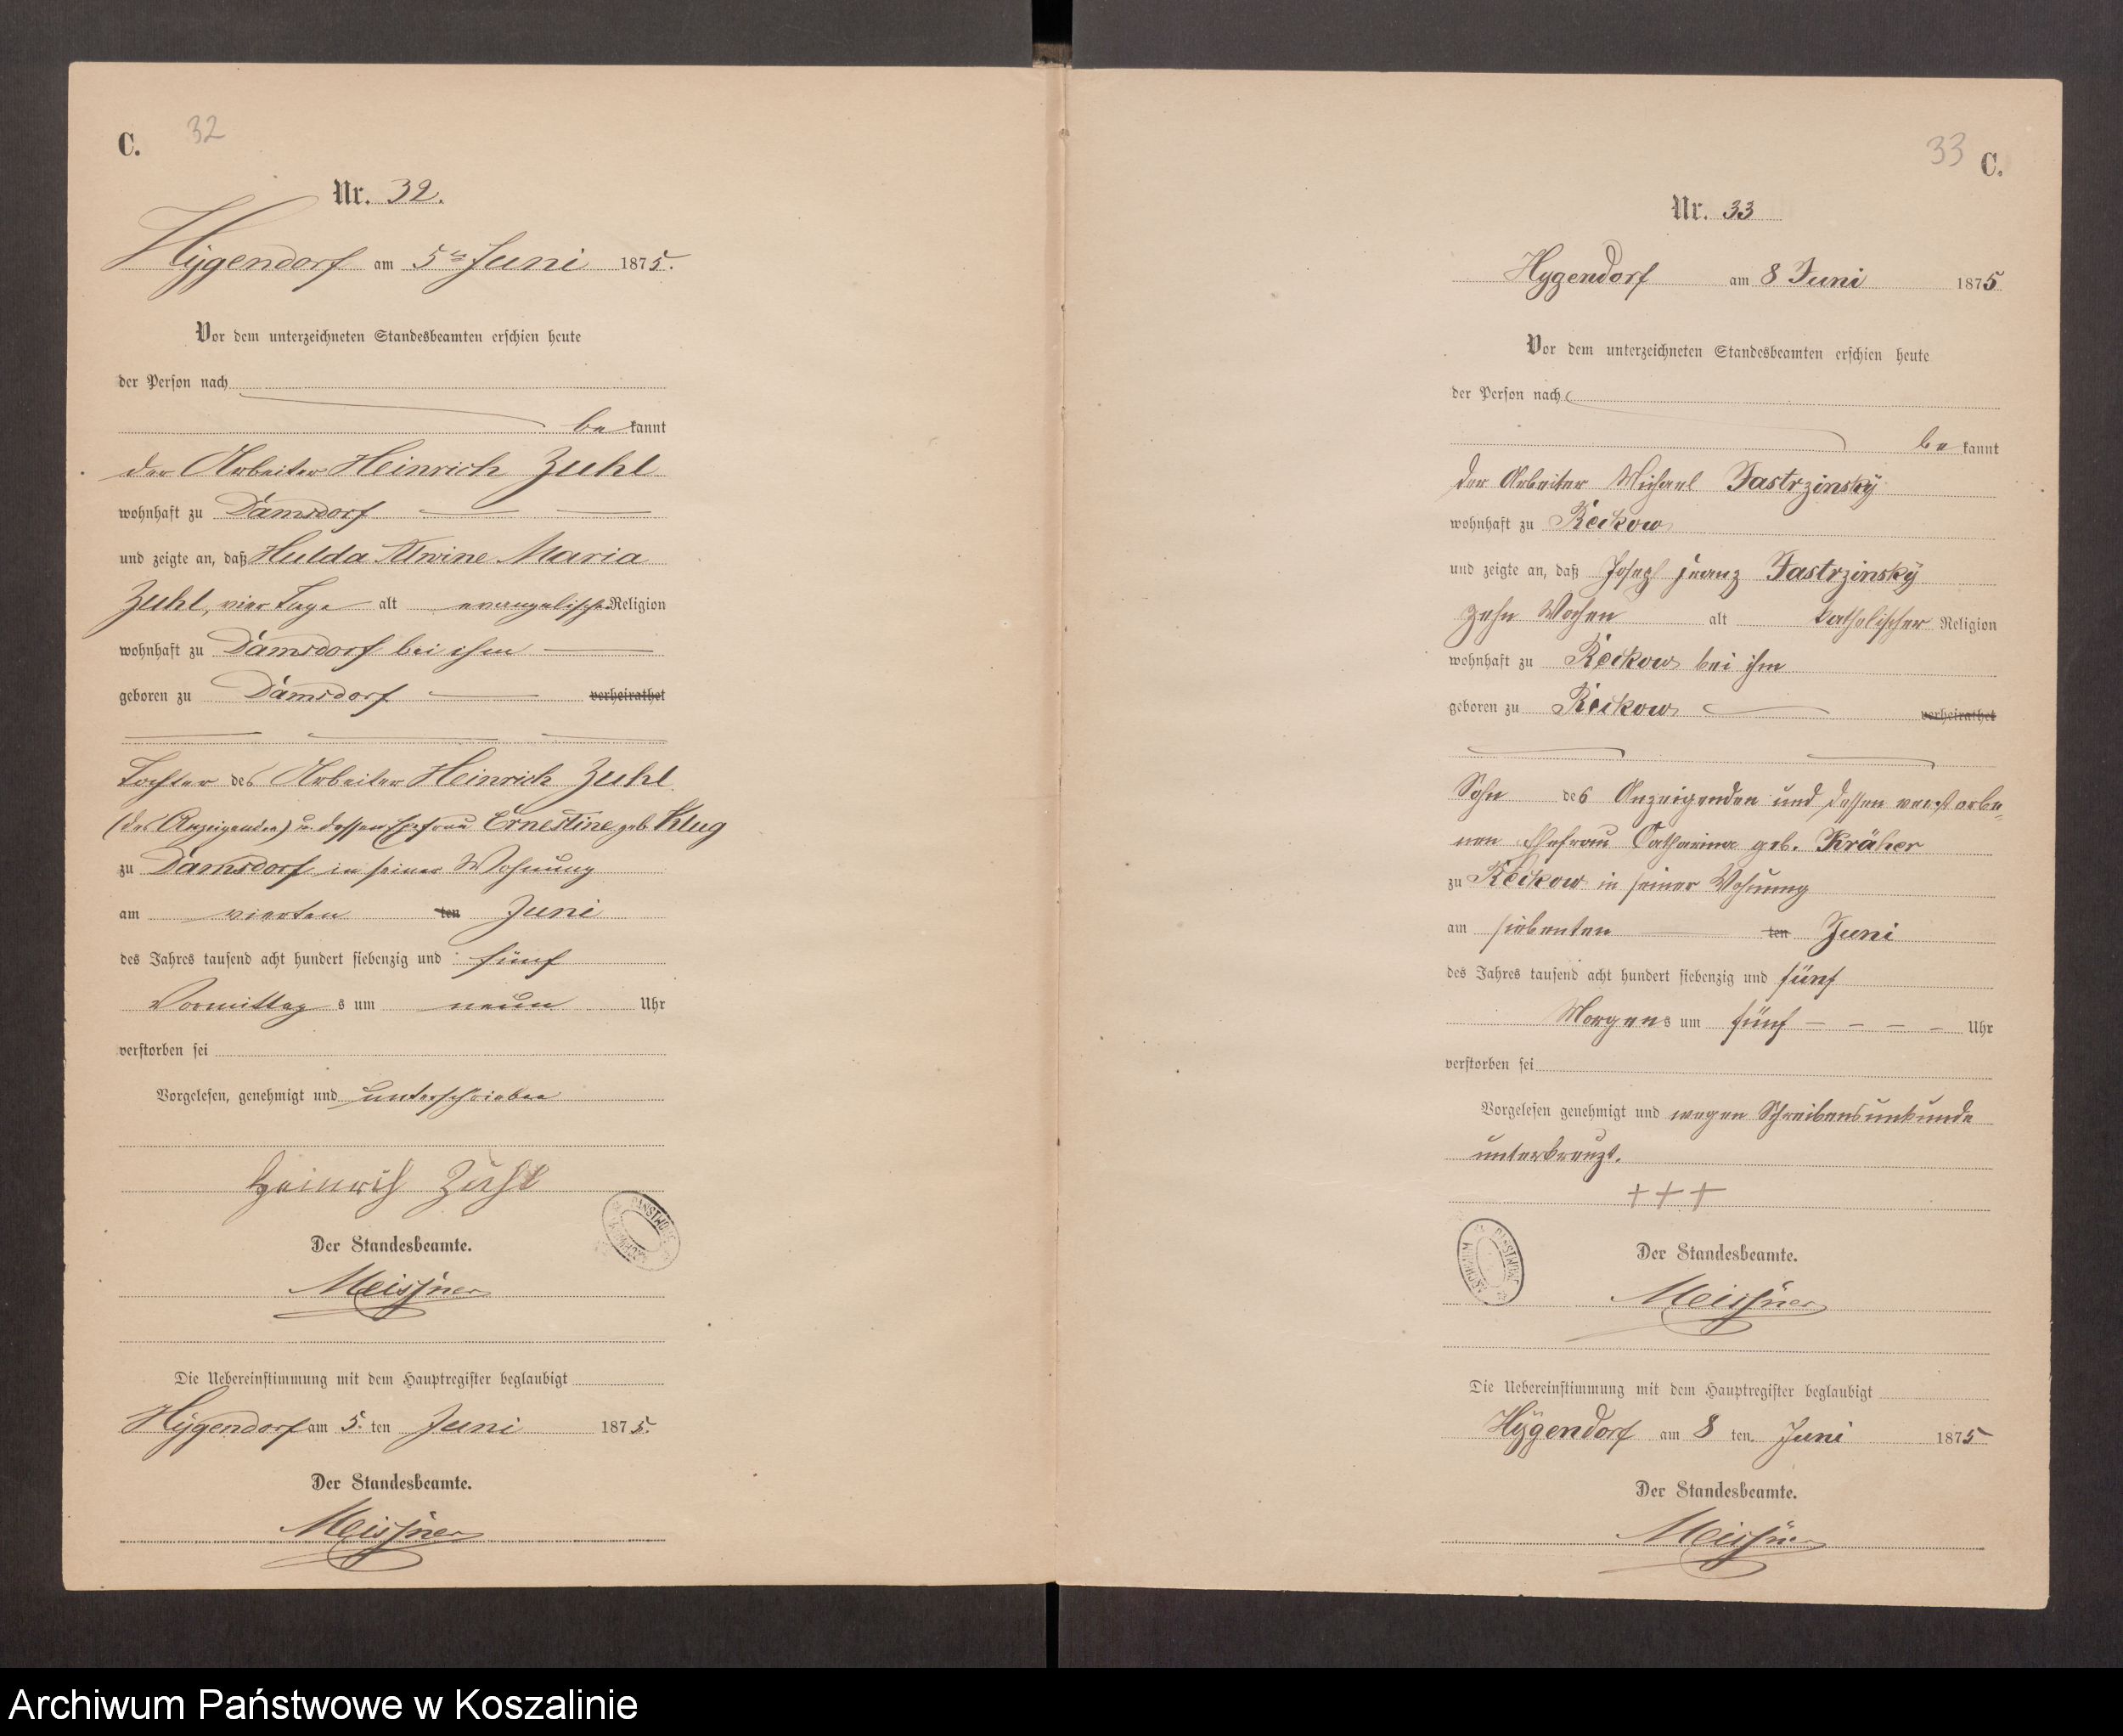 C. 32
Nr. 32.
Hÿgendorf am 5ten Juni 1875.
Vor dem unterzeichneten Standesbeamten erschien heute
der Person nach
bekannt
der Arbeiter Heinrich Zuhl
wohnhaft zu Damsdorf
und zeigte an, daß Hulda Alwine Maria
Zuhl, vier Tage alt evangelischer Religion
wohnhaft zu Damsdorf bei ihm
geboren zu Damsdorf verheirathet
Tochter des Arbeiter Heinrich Zuhl
(des Anzeigenden) u. dessen Ehefrau Ernestine geb. Klug
zu Damsdorf in seiner Wohnung
am vierten ten Juni
des Jahres tausend acht hundert siebenzig und fünf
Vormittags um neun Uhr
verstorben sei
Vorgelesen, genehmigt und unterschrieben
Heinrich Zuhl
Der Standesbeamte.
Meissner
Die Uebereinstimmung mit dem Hauptregister beglaubigt
Hÿgendorf am 5. ten Juni 1875.
Der Standesbeamte.
Meissner
33 C.
Nr. 33
Hygendorf am 8 Juni 1875
Vor dem unterzeichneten Standesbeamten erschien heute
der Person nach
bekannt
der Arbeiter Michael Jastrzinskÿ
wohnhaft zu Reckow
und zeigte an, daß Joseph Franz Jastrzinskÿ
zehn Wochen alt katholischer Religion
wohnhaft zu Reckow bei ihm
geboren zu Reckow verheirathet
Sohn des Anzeigenden und dessen verstorbe-
nen Ehefrau Catharina geb. Kräher
zu Reckow in seiner Wohnung
am siebenten ten Juni
des Jahres tausend acht hundert siebenzig und fünf
Morgens um fünf Uhr
verstorben sei
Vorgelesen genehmigt und wegen Schreibensunkunde
unterkreuzt.
+++
Der Standesbeamte.
Meissner
Die Uebereinstimmung mit dem Hauptregister beglaubigt
Hÿgendorf am 8 ten Juni 1875
Der Standesbeamte.
Meissner
Archiwum Państwowe w Koszalinie